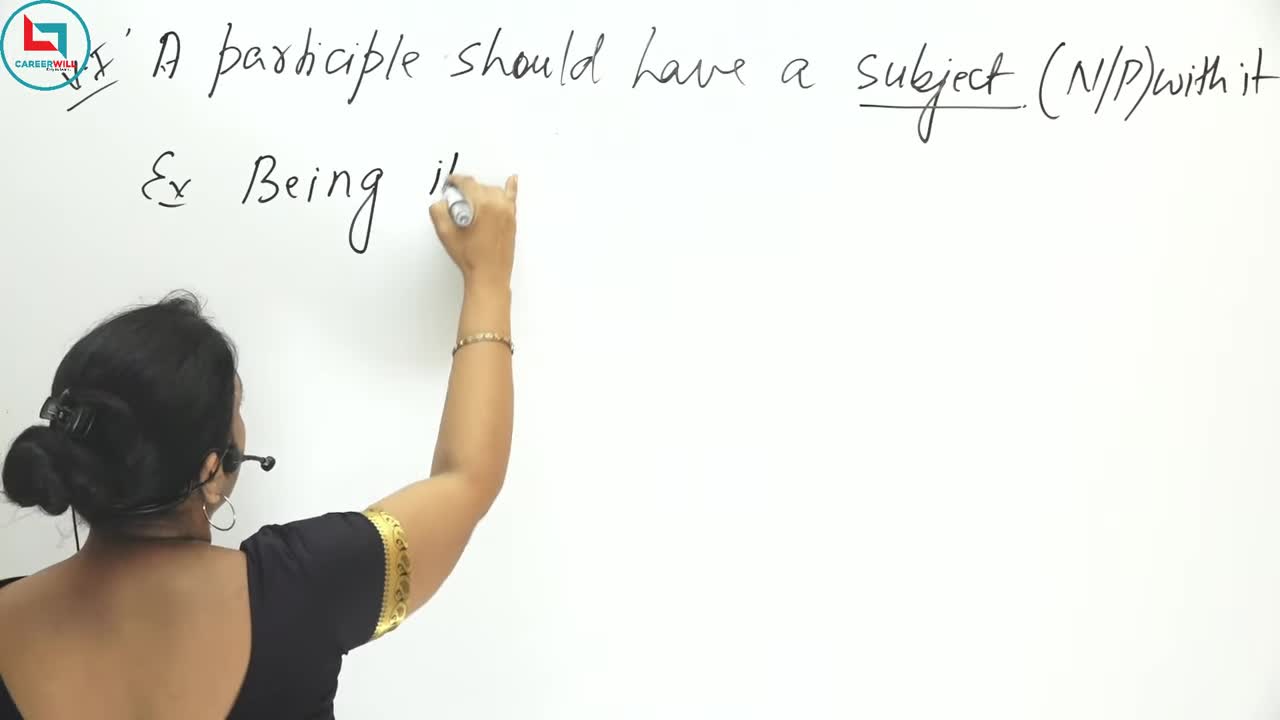 CAREERWILL
A participle should have a subject (N/P) with it
Ex Being